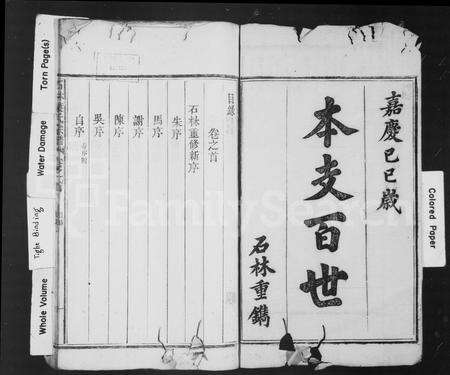 嘉慶己巳歲
本支百世
石林重鐫
目錄
卷之首
石林重修新序
朱序
馬序
謝序
陳序
吳序
自序
Torn Page(s)
Water Damage
Tight Binding
Whole Volume
Colored Paper
FamilySearch